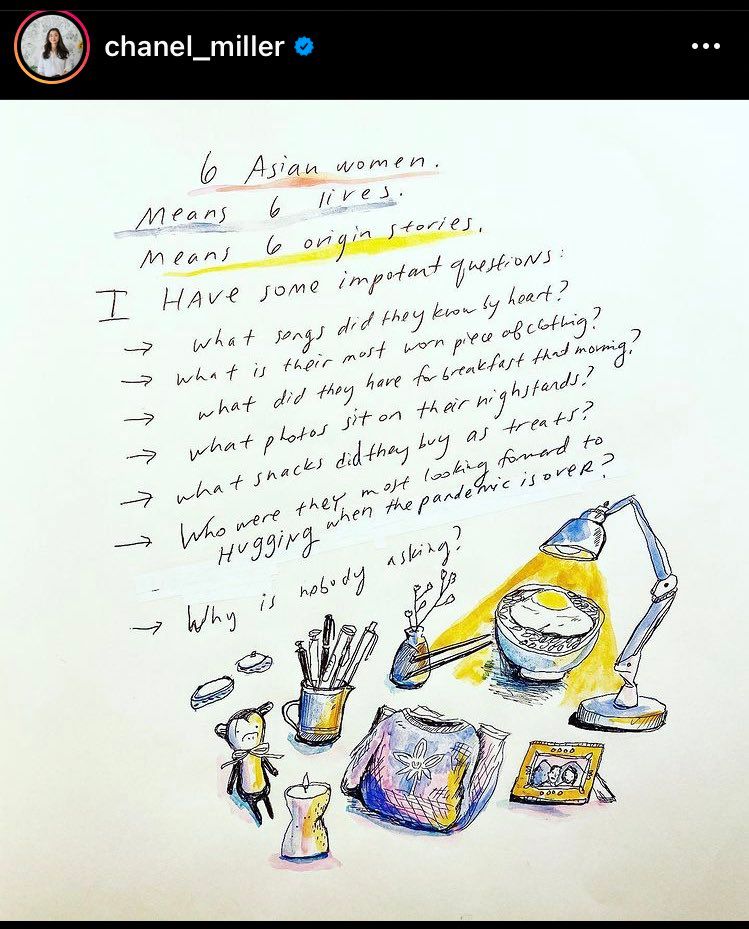 chanel_miller
6 Asian women.
Means 6 lives.
Means 6 origin stories.
I HAVE some impotant questions:
→ what songs did they know by heart?
→ what is their most worn piece of clothing?
→ what did they have for breakfast that morning?
→ what photos sit on their nighstands?
→ what snacks did they buy as treats?
→ Who were they most looking forward to
HUGGING when the pandemic is over?
→ Why is nobody asking?